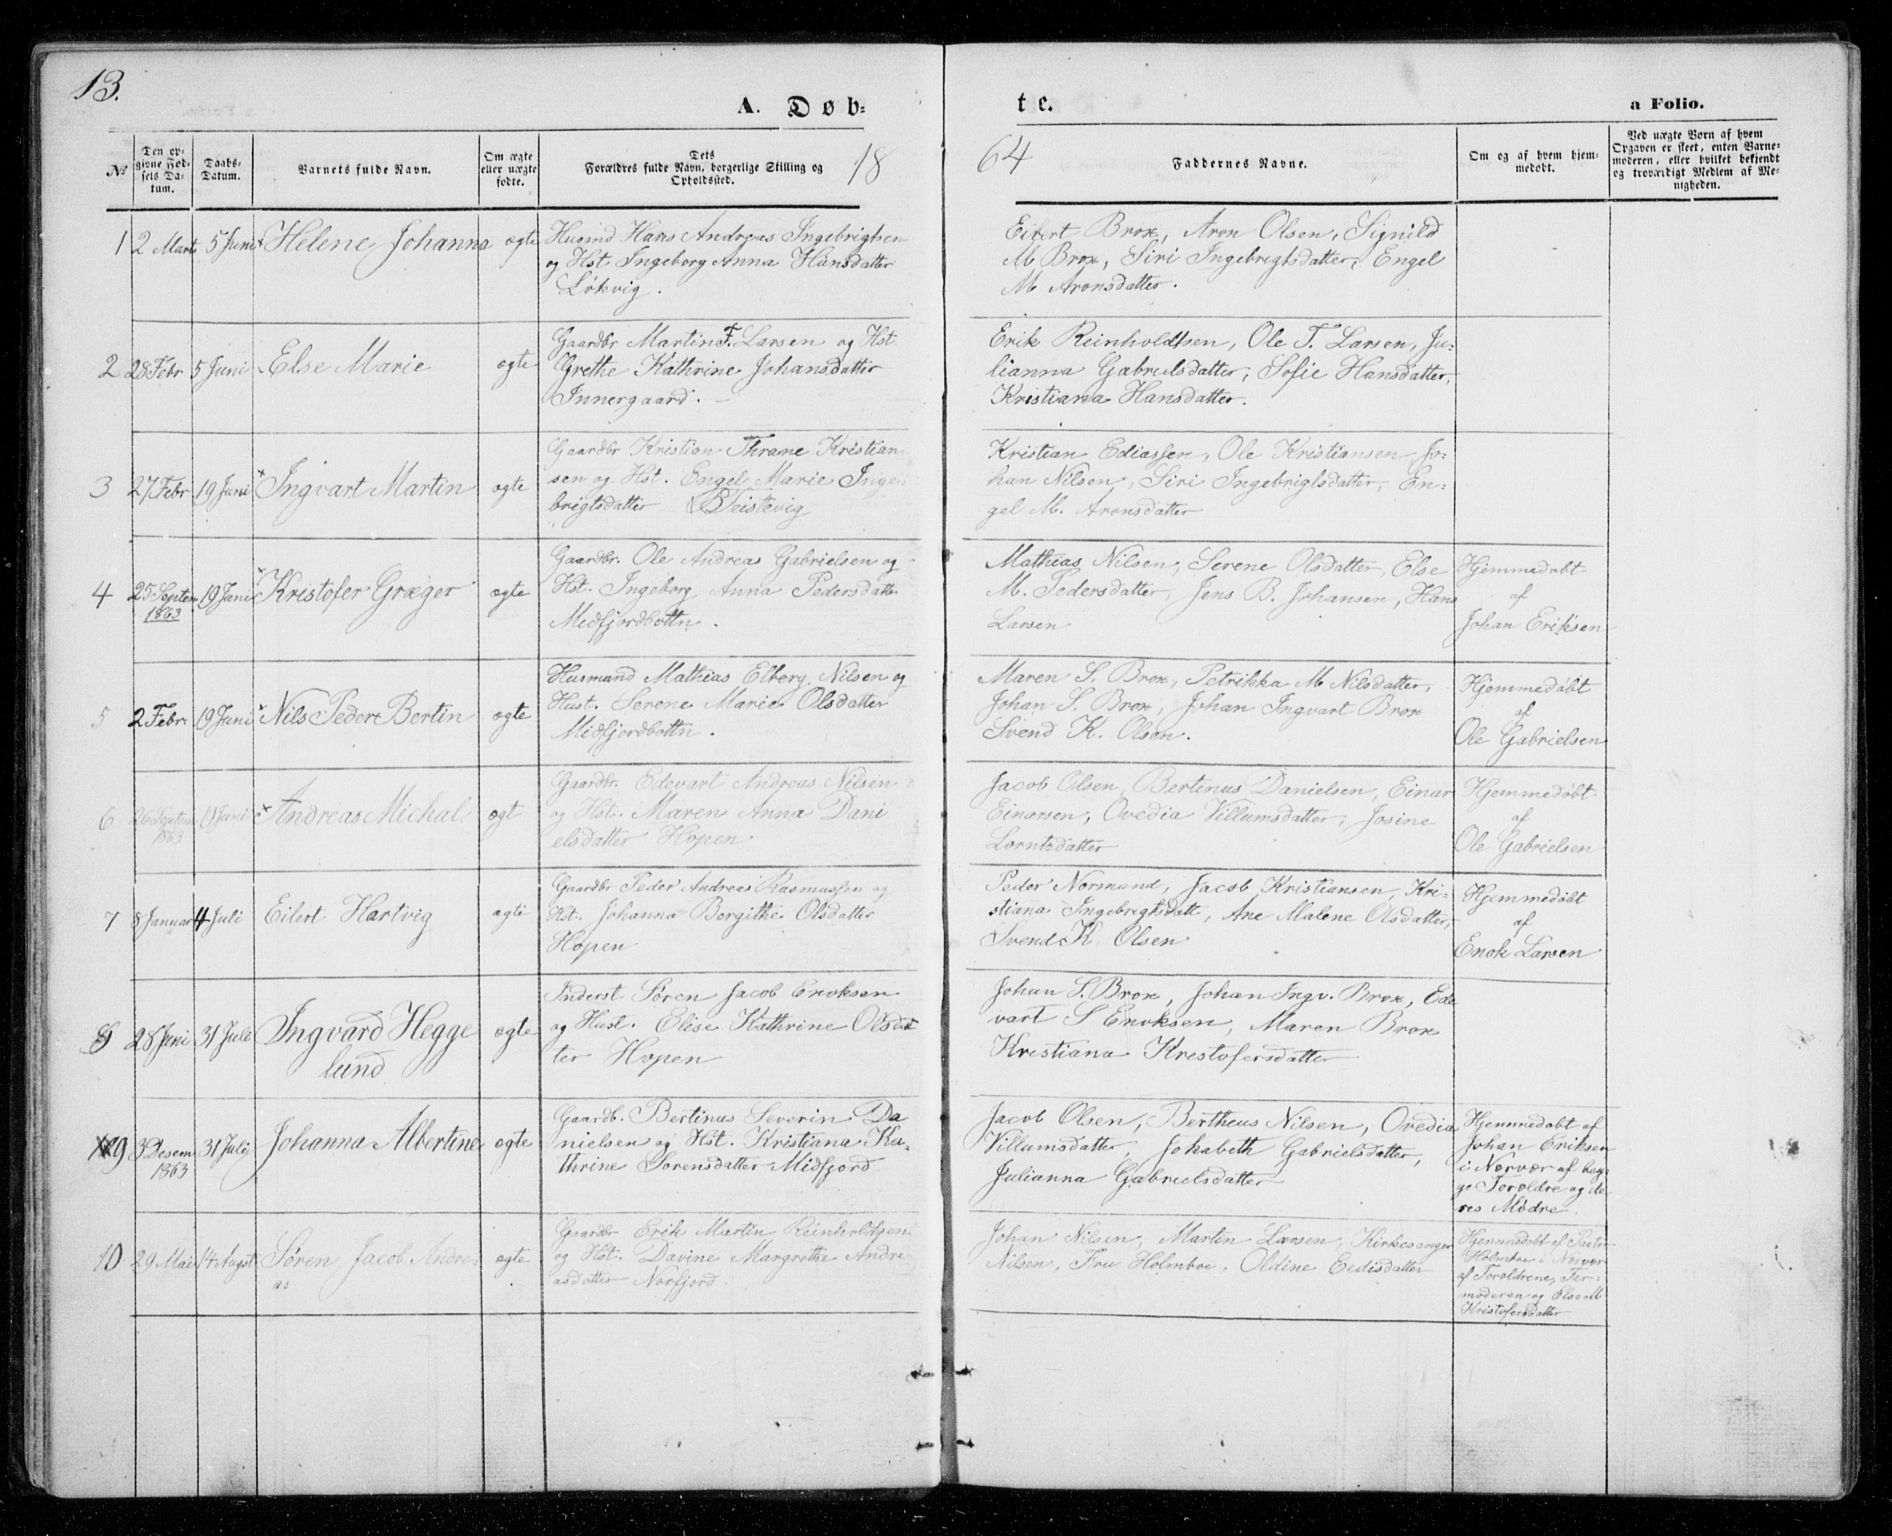 13.
A. Døb-
te.
a Folio.
№
Den op-
givne Fød-
sels Da-
tum.
Daabs-
Datum.
Varnets fulde Navn.
Om ægte
eller uægte
fødte.
Dets
Forældres fulde Navn, borgerlige Stilling og
Opholdssted.
18
64
Faddernes Navne.
Om og af hvem hjem-
medøbt.
Ved uægte Børn af hvem
Opgaven er skeet, enten Barne-
moderen, eller hvilket bekjendt
og troværdigt Medlem af Me-
nigheden.
1 2 Mart 5 Juni Helene Johanna ægte
Husmd Hans Andreas Ingebrigtsen
og Hst Ingeborg Anna Hansdatter
Løkvig.
Eilert Brox, Aron Olsen, Signild
M Brox, Siri Ingebrigtsdatter, Engel
M. Aronsdatter.
2 28 Febr 5 Juni Else Marie ægte
Gaardbr Martin F. Larsen og Hst
Grethe Kathrine Johansdatter
Innergaard.
Erik Reinholdtsen, Ole T. Larsen, Ju-
lianna Gabrielsdatter, Sofie Hansdatter,
Kristiana Hansdatter.
3 27 Febr 19 Juni Ingvart Martin ægte
Gaardbr Kristian Thrane Kristian-
sen og Hst. Engel Marie Inge-
brigtsdatter Teistevig
Kristian Ediassen, Ole Kristiansen Jo-
han Nilsen, Siri Ingebrigtsdatter, En-
gel M. Aronsdatter
4 25 Septem 1863 19 Juni Kristofer Græger ægte
Gaardbr. Ole Andreas Gabrielsen og
Hst. Ingeborg Anna Pedersdatter
Midfjordbottn.
Mathias Nilsen, Serene Olsdatter, Else
M. Pedersdatter, Jens B. Johansen, Hans
Larsen
Hjemmedøbt
af
Johan Eriksen
5 2 Febr 19 Juni Nils Peder Bertin ægte
Husmand Mathias Elberg Nilsen og
Hust. Serene Marie Olsdatter
Midfjordbottn.
Maren S. Brox, Petrikka M Nilsdatter,
Johan S. Brox, Johan Ingvart Brox
Svend K. Olsen.
Hjemmedøbt
af
Ole Gabrielsen
6 26 Septem 1863 19 Juni Andreas Michal ægt
Gaardbr. Edevart Andreas Nilsen
og Hst. Maren Anna Dani
elsdatter Hopen
Jacob Olsen, Bertinus Danielsen, Einar
Einarsen, Ovedia Villumsdatter, Josine
Lorntsdatter
Hjemmedøbt
af
Ole Gabrielsen
7 8 Januar 4 Juli Eilert Hartvig ægte
Gaardbr Peder Andreas Rasmussen og
Hst. Johanna Bergithe Olsdatter
Hopen
Peder Normand, Jacob Kristiansen, Kri-
stiana Ingebregtsdatt, Ane Malene Olsdatter,
Svend K. Olsen
Hjemmedøbt
af
Enok Larsen
8 28 Juni 31 Juli Ingvard Hegge ægte
lund
Inderst Søren Jacob Enoksen
og Hust. Elise Kathrine Olsdat
ter Hopen
Johan S. Brox, Johan Ingv. Brox, Ede
vart S Enoksen, Maren Brox
Kristiana Krestofersdatter
9 3 Desem 1863 31 Juli Johanna Albertine ægte
Gaardb. Bertinus Severin Da
nielsen og Hst. Kristiana Ka-
thrine Sørensdatter Midfjord
Jacob Olsen, Bertheus Nilsen, Ovedia
Villumsdatter, Johabeth Gabrielsdatter,
Julianna Gabrielsdatter
Hjemmedøbt af
Johan Eriksen
i Nærvær af beg-
ge Forældre og de-
res Mødre.
10 29 Mai 14 Augst Søren Jacob Andre- ægte
as
Gaardbr Erik Martin Reinholdtsen
og Hst. Davine Margrethe Andre
asdatter Norfjord
Johan Nilsen, Martin Larsen, Kirkesanger
Nilsen, Fru Holmboe, Oldine Eedisdatter
Hjemmedøbt af Pastor
Holmboe i Nærvær
af Forældrene, Far-
moderen og Else M
Kristofersdatter